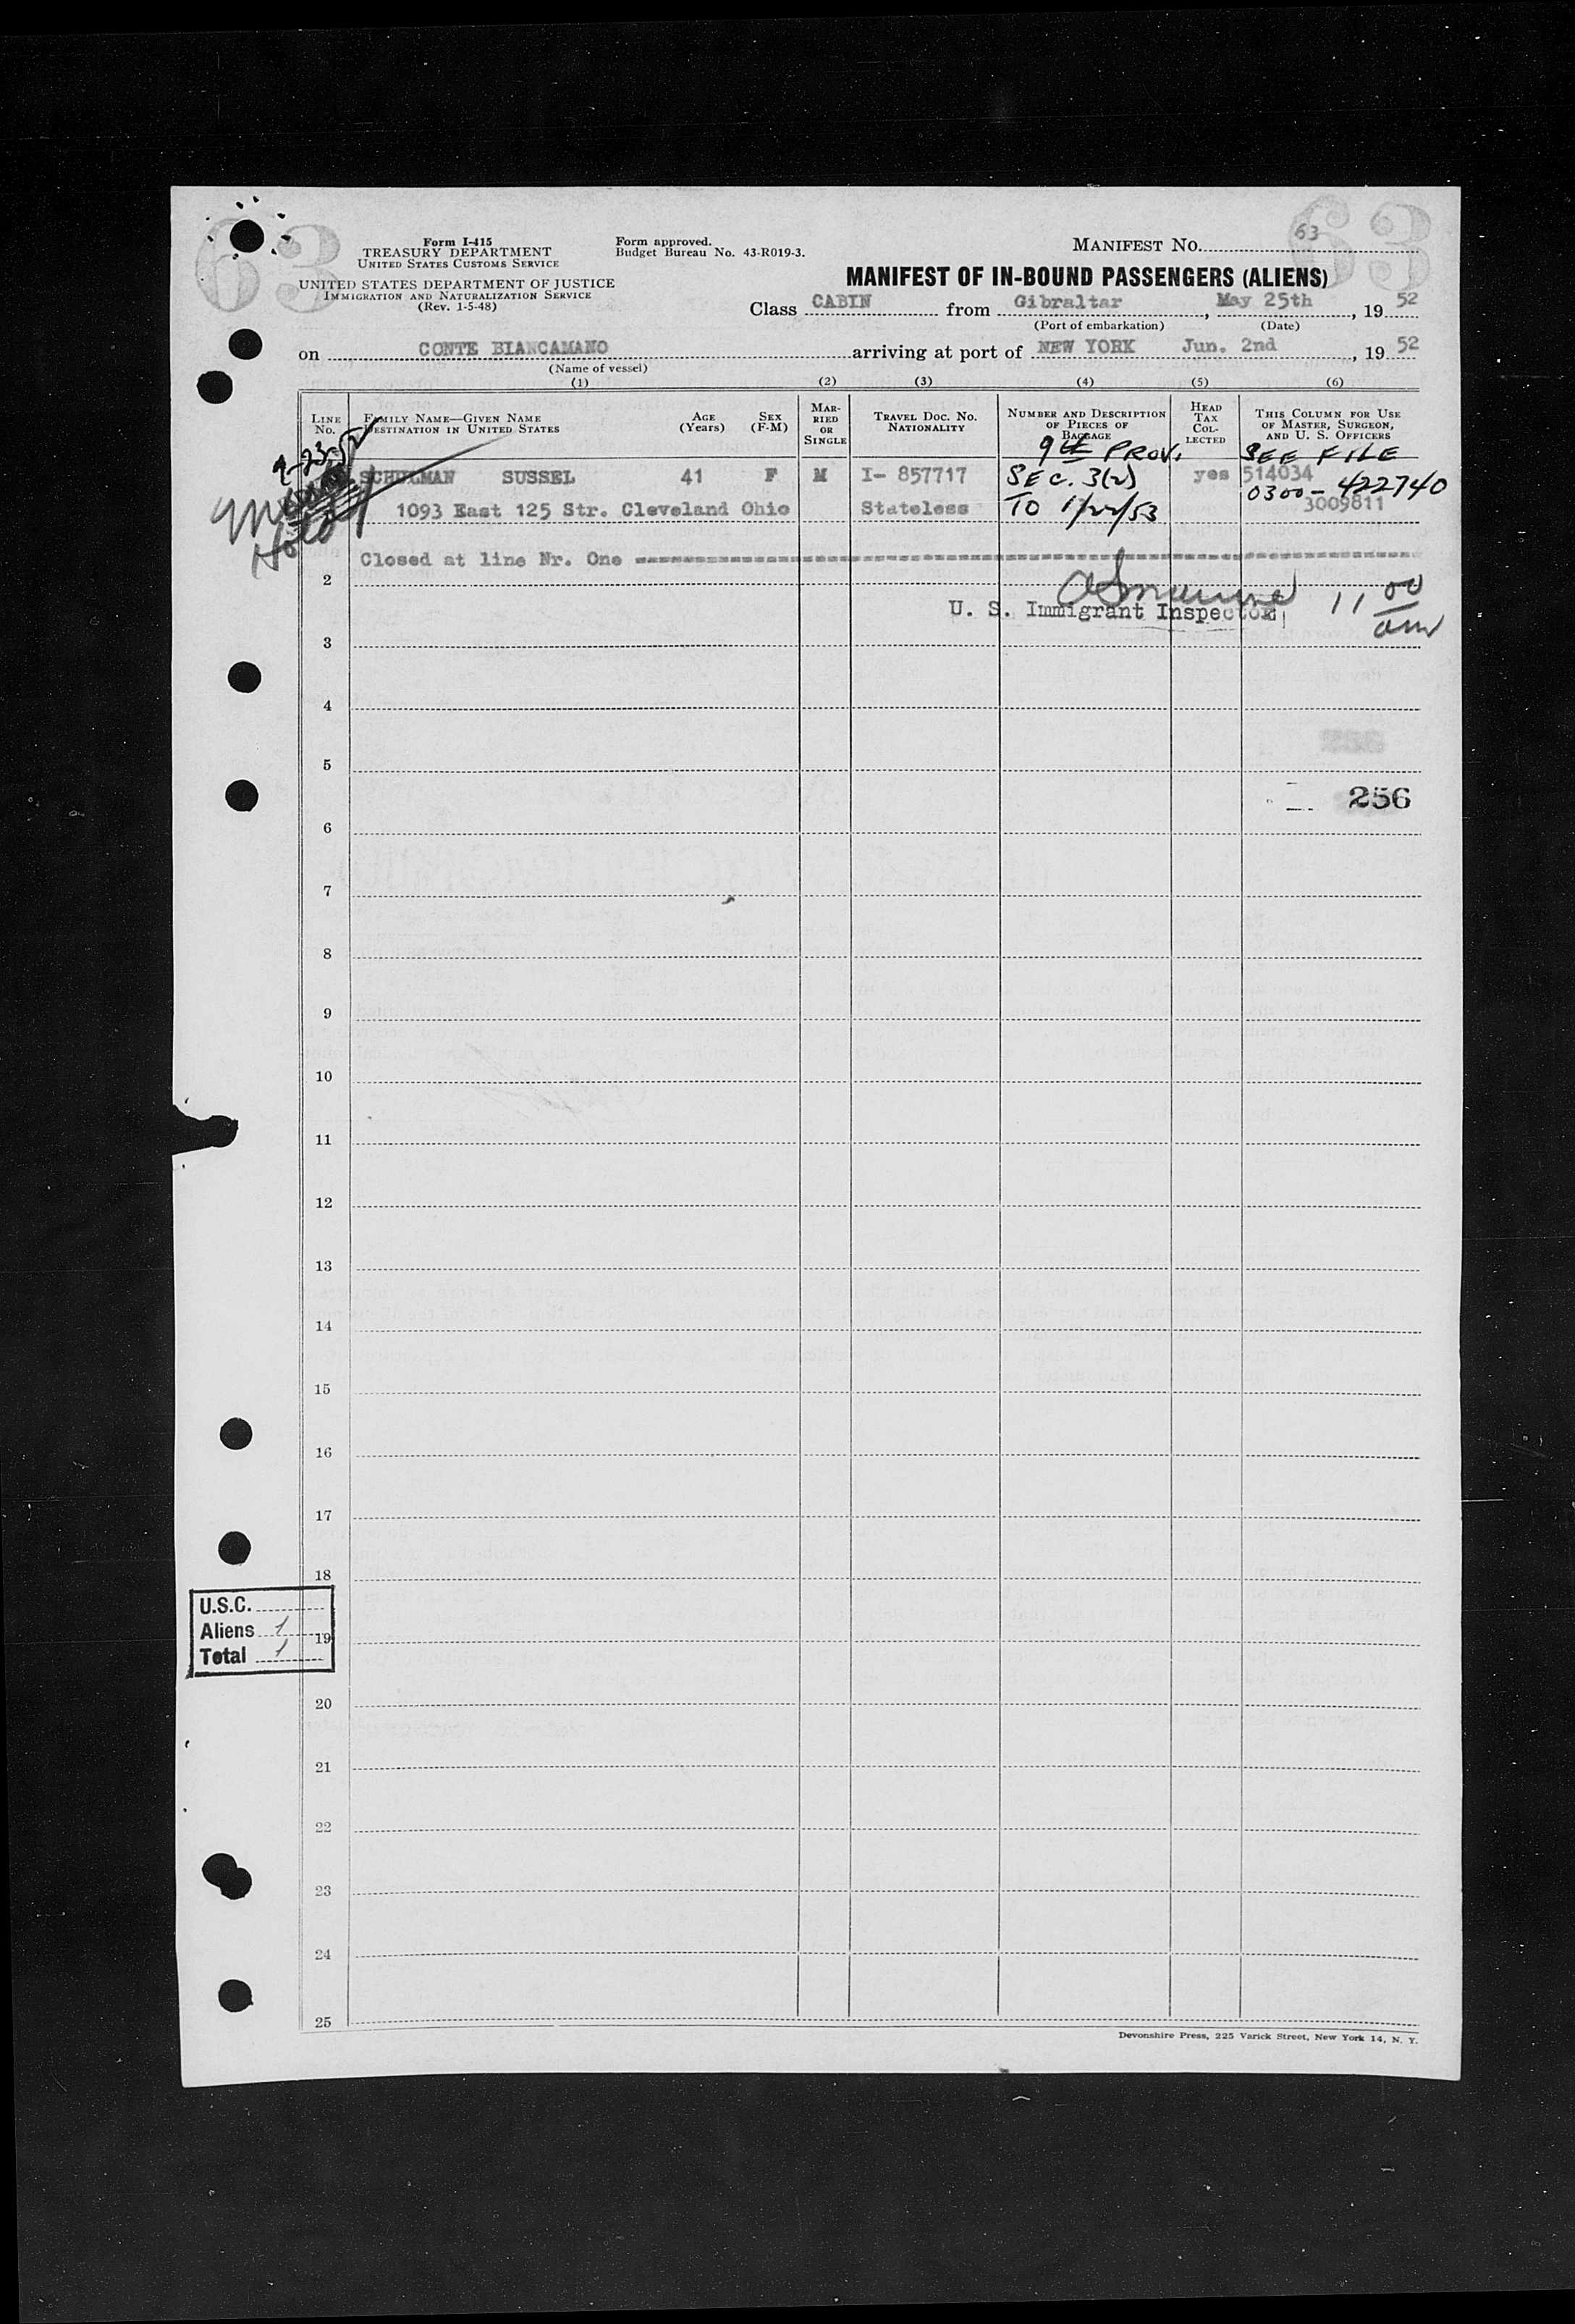 63 63
Form I-415
TREASURY DEPARTMENT
UNITED STATES CUSTOMS SERVICE
UNITED STATES DEPARTMENT OF JUSTICE
IMMIGRATION AND NATURALIZATION SERVICE
(Rev. 1-5-48)
Form approved.
Budget Bureau No. 43-R019-3.
MANIFEST NO. 63
MANIFEST OF IN-BOUND PASSENGERS (ALIENS)
Class CABIN from Gibraltar, May 25th, 19 52
(Port of embarkation) (Date)
on CONTE BIANCAMANO arriving at port of NEW YORK Jun. 2nd, 19 52
(Name of vessel)
(1) (2) (3) (4) (5) (6)
LINE No.
FAMILY NAME—GIVEN NAME
DESTINATION IN UNITED STATES
AGE (Years)
SEX (F-M)
MARRIED OR SINGLE
TRAVEL DOC. NO. NATIONALITY
NUMBER AND DESCRIPTION OF PIECES OF BAGGAGE
HEAD TAX COLLECTED
THIS COLUMN FOR USE OF MASTER, SURGEON, AND U. S. OFFICERS
9th PROV. SEE FILE
SCHULMAN SUSSEL 41 F M I- 857717 SEC. 3(2) yes 514034
0300-422740
1093 East 125 Str. Cleveland Ohio Stateless TO 1/22/53 3009811
Hold
Closed at line Nr. One
2
U. S. Immigrant Inspector 11 00 am
3
4
5
256
6
7
8
9
10
11
12
13
14
15
16
17
18
U.S.C.
Aliens 1
19
Total 1
20
21
22
23
24
25
Devonshire Press, 225 Varick Street, New York 14, N. Y.